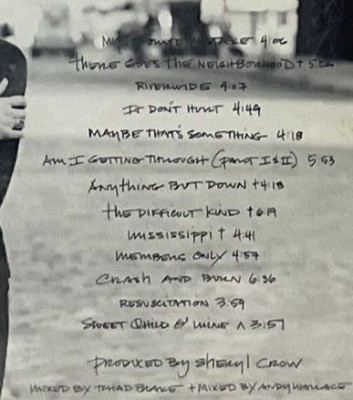 MY FAVORITE MISTAKE 4:06
THERE GOES THE NEIGHBORHOOD †
RIVERWIDE 4:07
IT DON'T HURT 4:49
MAYBE THAT'S SOMETHING 4:18
AM I GETTING THROUGH (PART I & II) 5:53
ANYTHING BUT DOWN † 4:18
THE DIFFICULT KIND † 6:19
MISSISSIPPI † 4:41
MEMBERS ONLY 4:57
CRASH AND BURN 6:36
RESUSCITATION 3:59
SWEET CHILD O' MINE ∧ 3:51
PRODUCED BY SHERYL CROW
MIXED BY TCHAD BLAKE + MIXED BY ANDY WALLACE